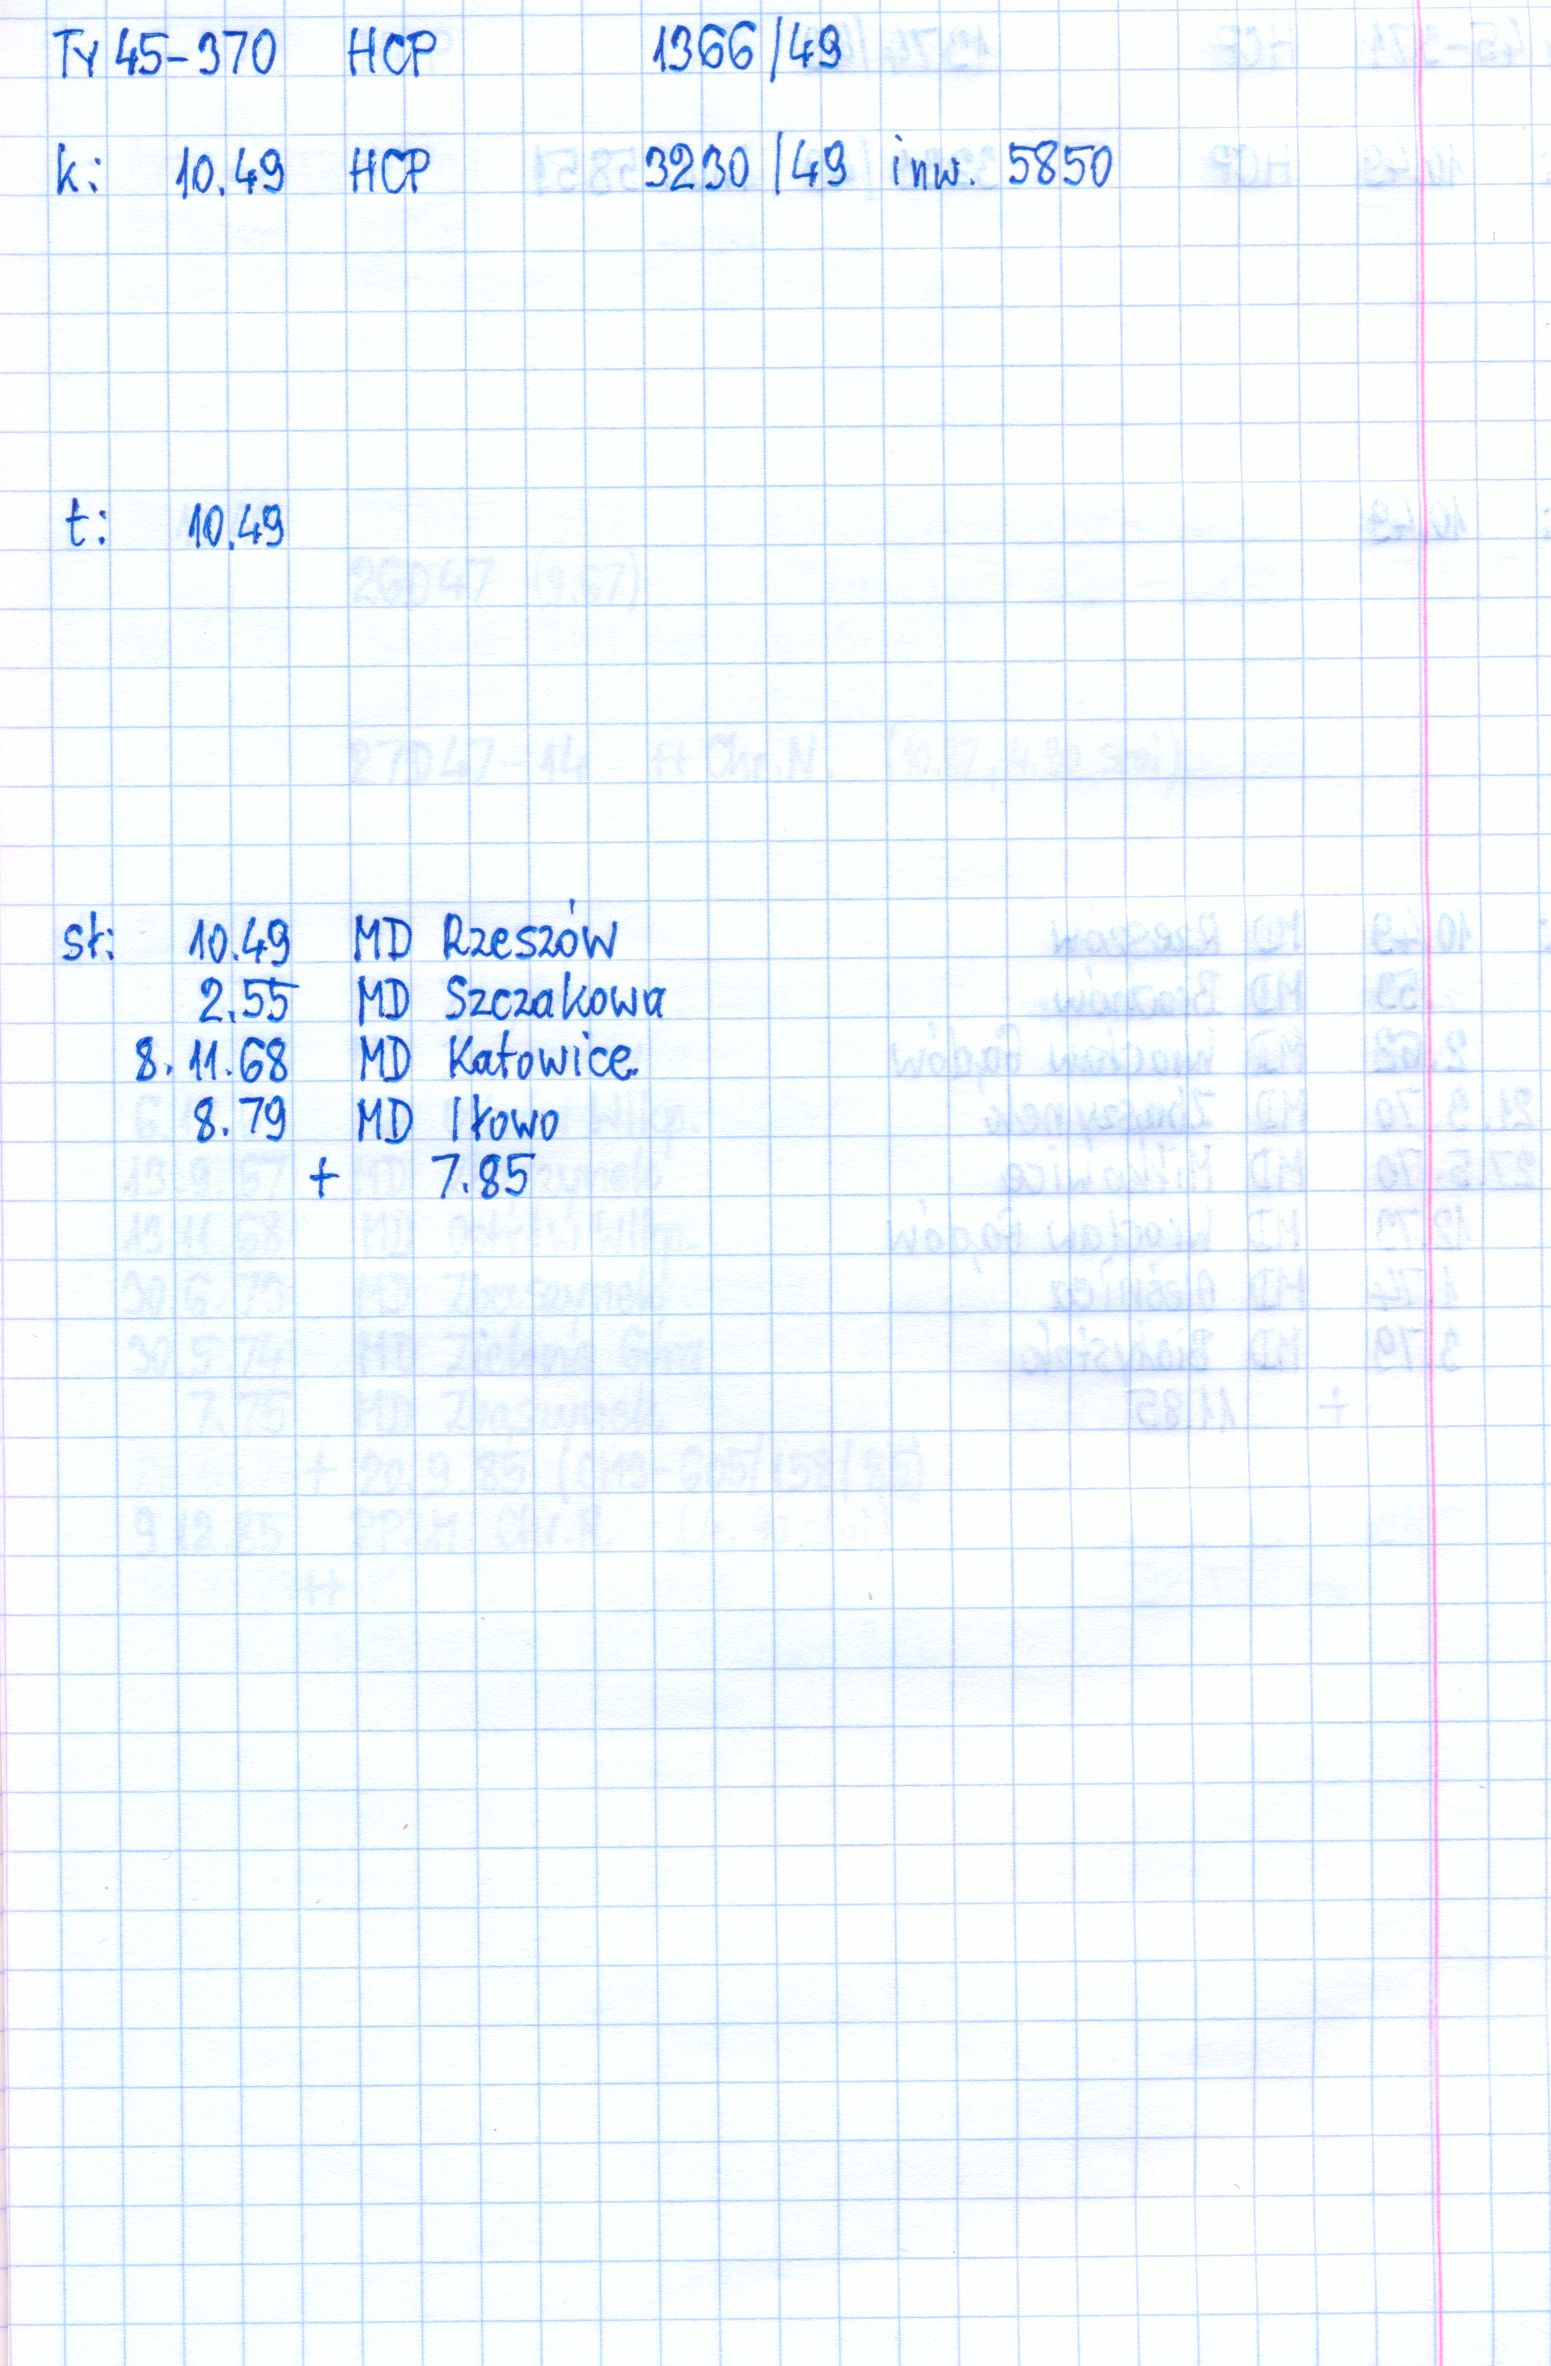 Ty45-370 HCP 1366/49
k: 10.49 HCP 3230/49 inw. 5850
t: 10.49
sł: 10.49 MD Rzeszów
2.55 MD Szczakowa
8.11.68 MD Katowice
8.79 MD Iłowo
+ 7.85